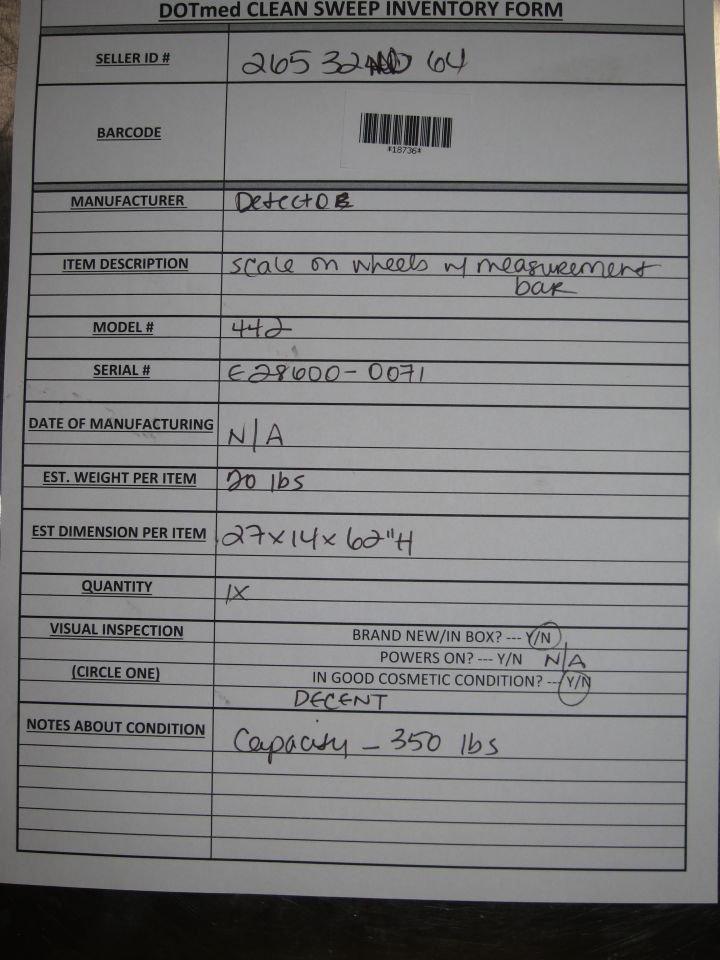 DOTmed CLEAN SWEEP INVENTORY FORM
SELLER ID # 265 32 64
BARCODE
*18736*
MANUFACTURER DetectO
ITEM DESCRIPTION scale on wheels w/ measurement
bar
MODEL # 442
SERIAL # E28600-0071
DATE OF MANUFACTURING N/A
EST. WEIGHT PER ITEM 20 lbs
EST DIMENSION PER ITEM 27x14x62"H
QUANTITY 1X
VISUAL INSPECTION BRAND NEW/IN BOX? --- Y/N
POWERS ON? --- Y/N N/A
(CIRCLE ONE) IN GOOD COSMETIC CONDITION? --- Y/N
DECENT
NOTES ABOUT CONDITION Capacity - 350 lbs